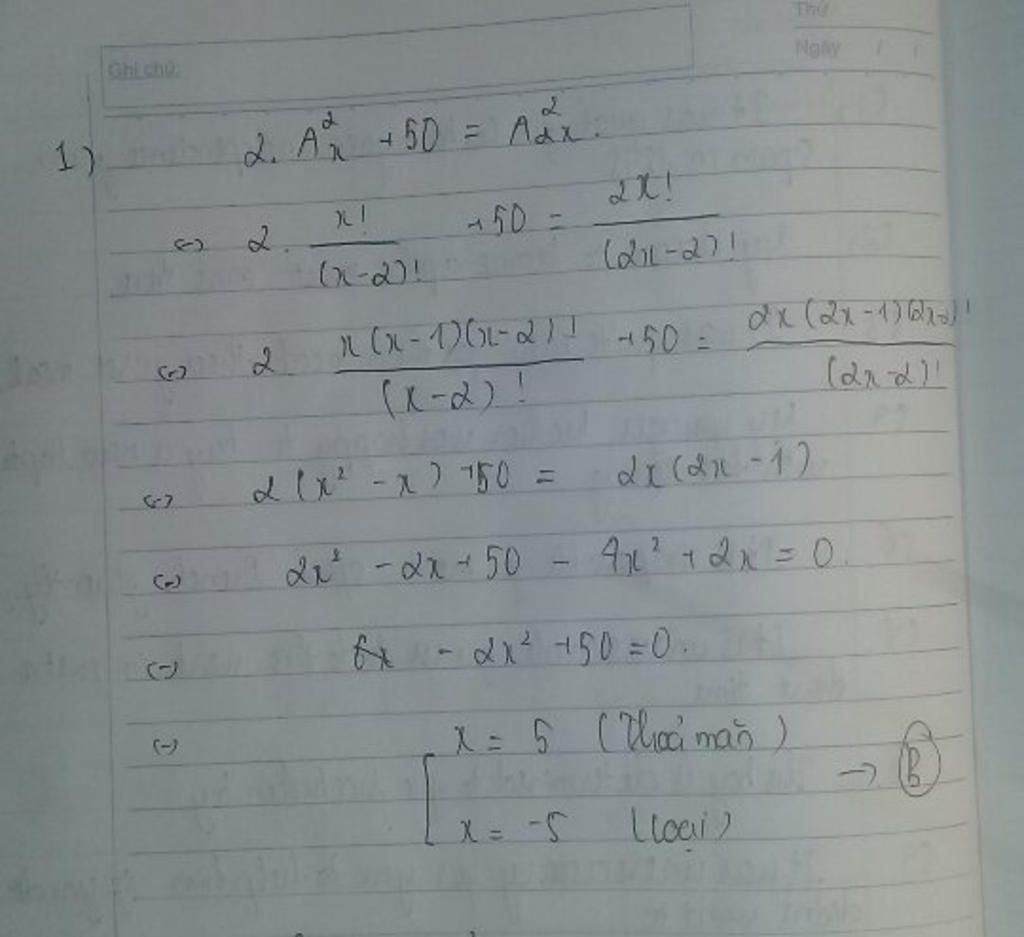 Thứ
Ngày / /
Ghi chú:
1) 2. A²ₓ + 50 = A²₂ₓ.
<-> 2. x!/(x-2)! + 50 = 2x!/(2x-2)!
<-> 2 x(x-1)(x-2)!/(x-2)! + 50 = 2x(2x-1)(2x-2)!/(2x-2)!
<-> 2(x² - x) + 50 = 2x(2x - 1)
<-> 2x² - 2x + 50 - 4x² + 2x = 0.
<-> - 2x² + 50 = 0.
<-> x = 5 (Thoả mãn)
x = -5 (loại) -> B